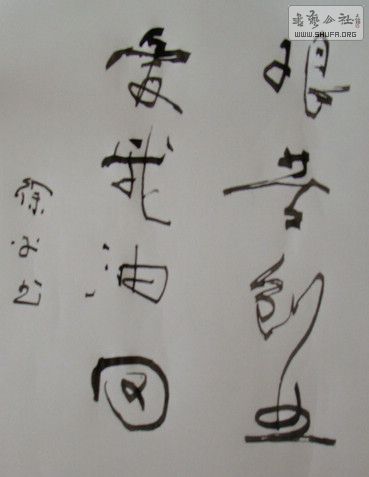 艰苦创业
爱我油田
徐 书
书艺公社
WWW.SHUFA.ORG